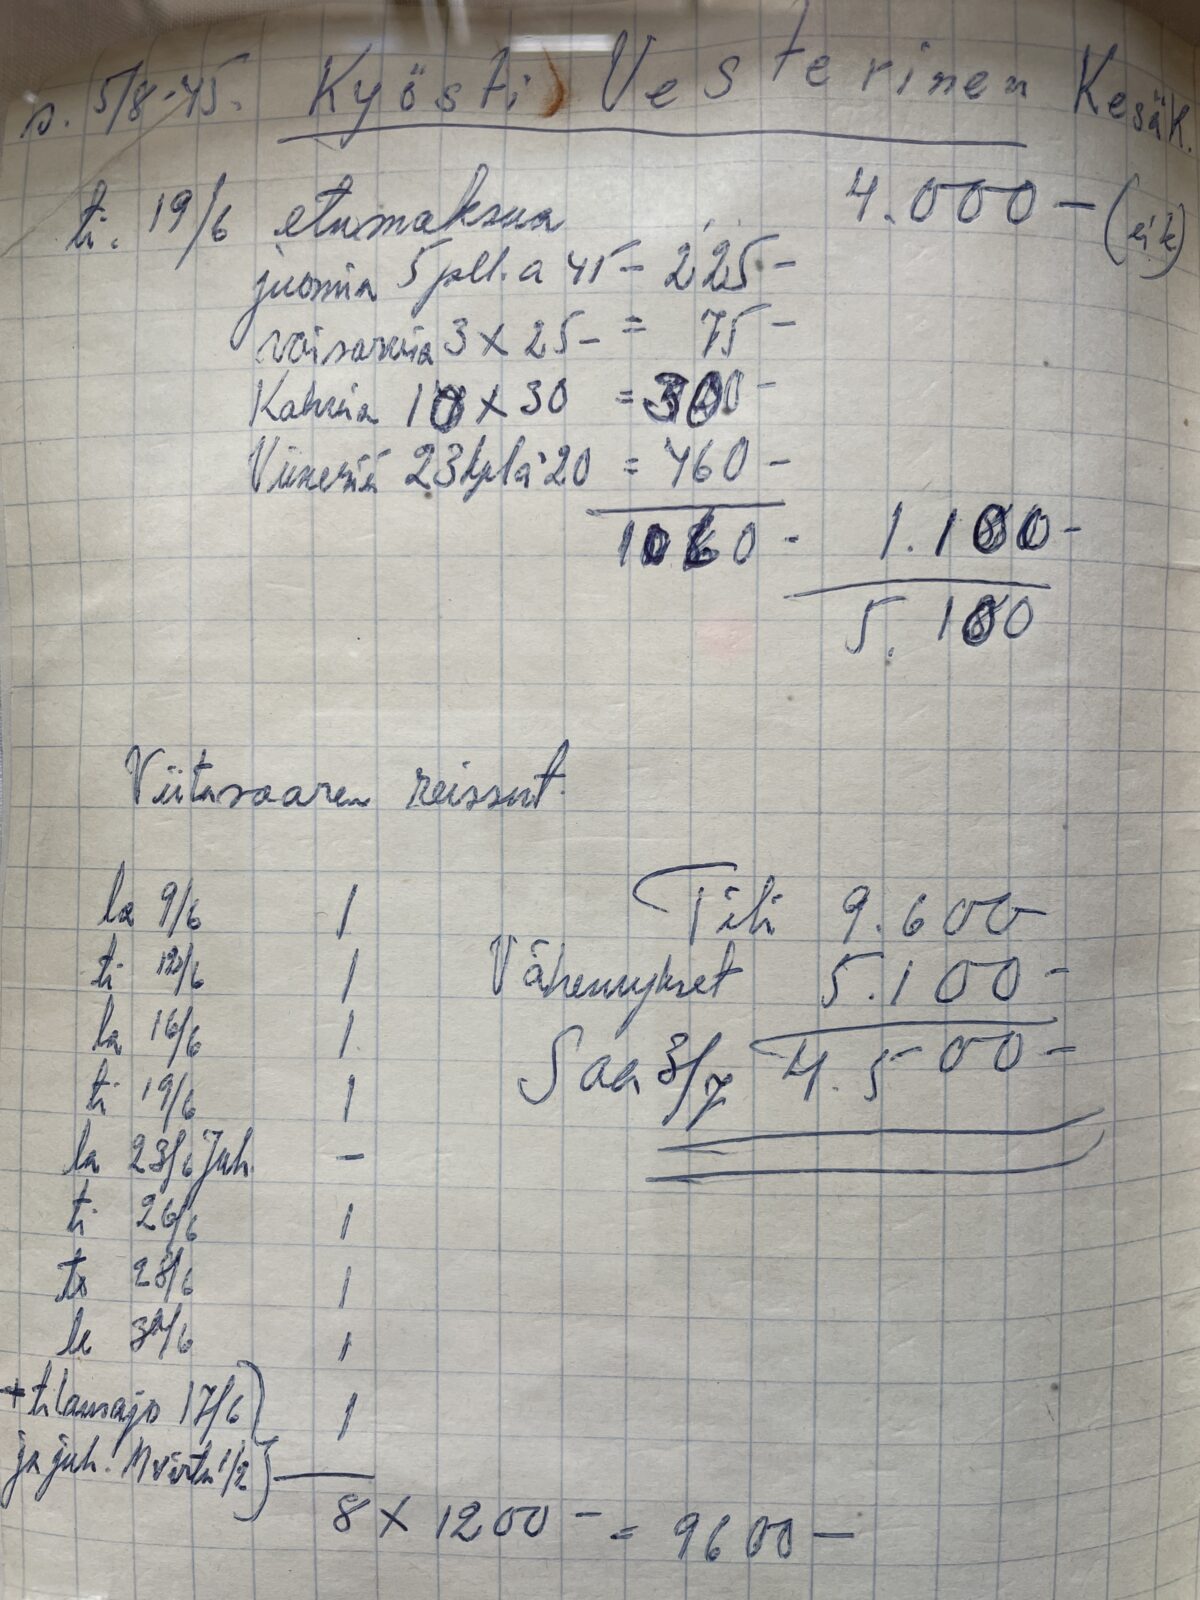 s. 5/8-45. Kyösti Vesterinen Kesäk.
ti. 19/6 etumaksua 4.000 -
juomia 5 pll. a 45 - 225 -
3 x 25 - = 75 -
Kahvia 10 x 30 = 300 -
Viineriä 23 kpl á 20 = 460 -
1060 - 1.100 -
5.100
Viitasaaren reissut.
la 9/6 1
ti 12/6 1
la 16/6 1
ti 19/6 1
la 23/6 Juh. -
ti 26/6 1
to 28/6 1
la 30/6 1
+ tilausajo 17/6 1
ja juh. 1/2
8 x 1200 - = 9600 -
Tili 9.600
Vähennykset 5.100 -
Saa 3/7 4.500 -